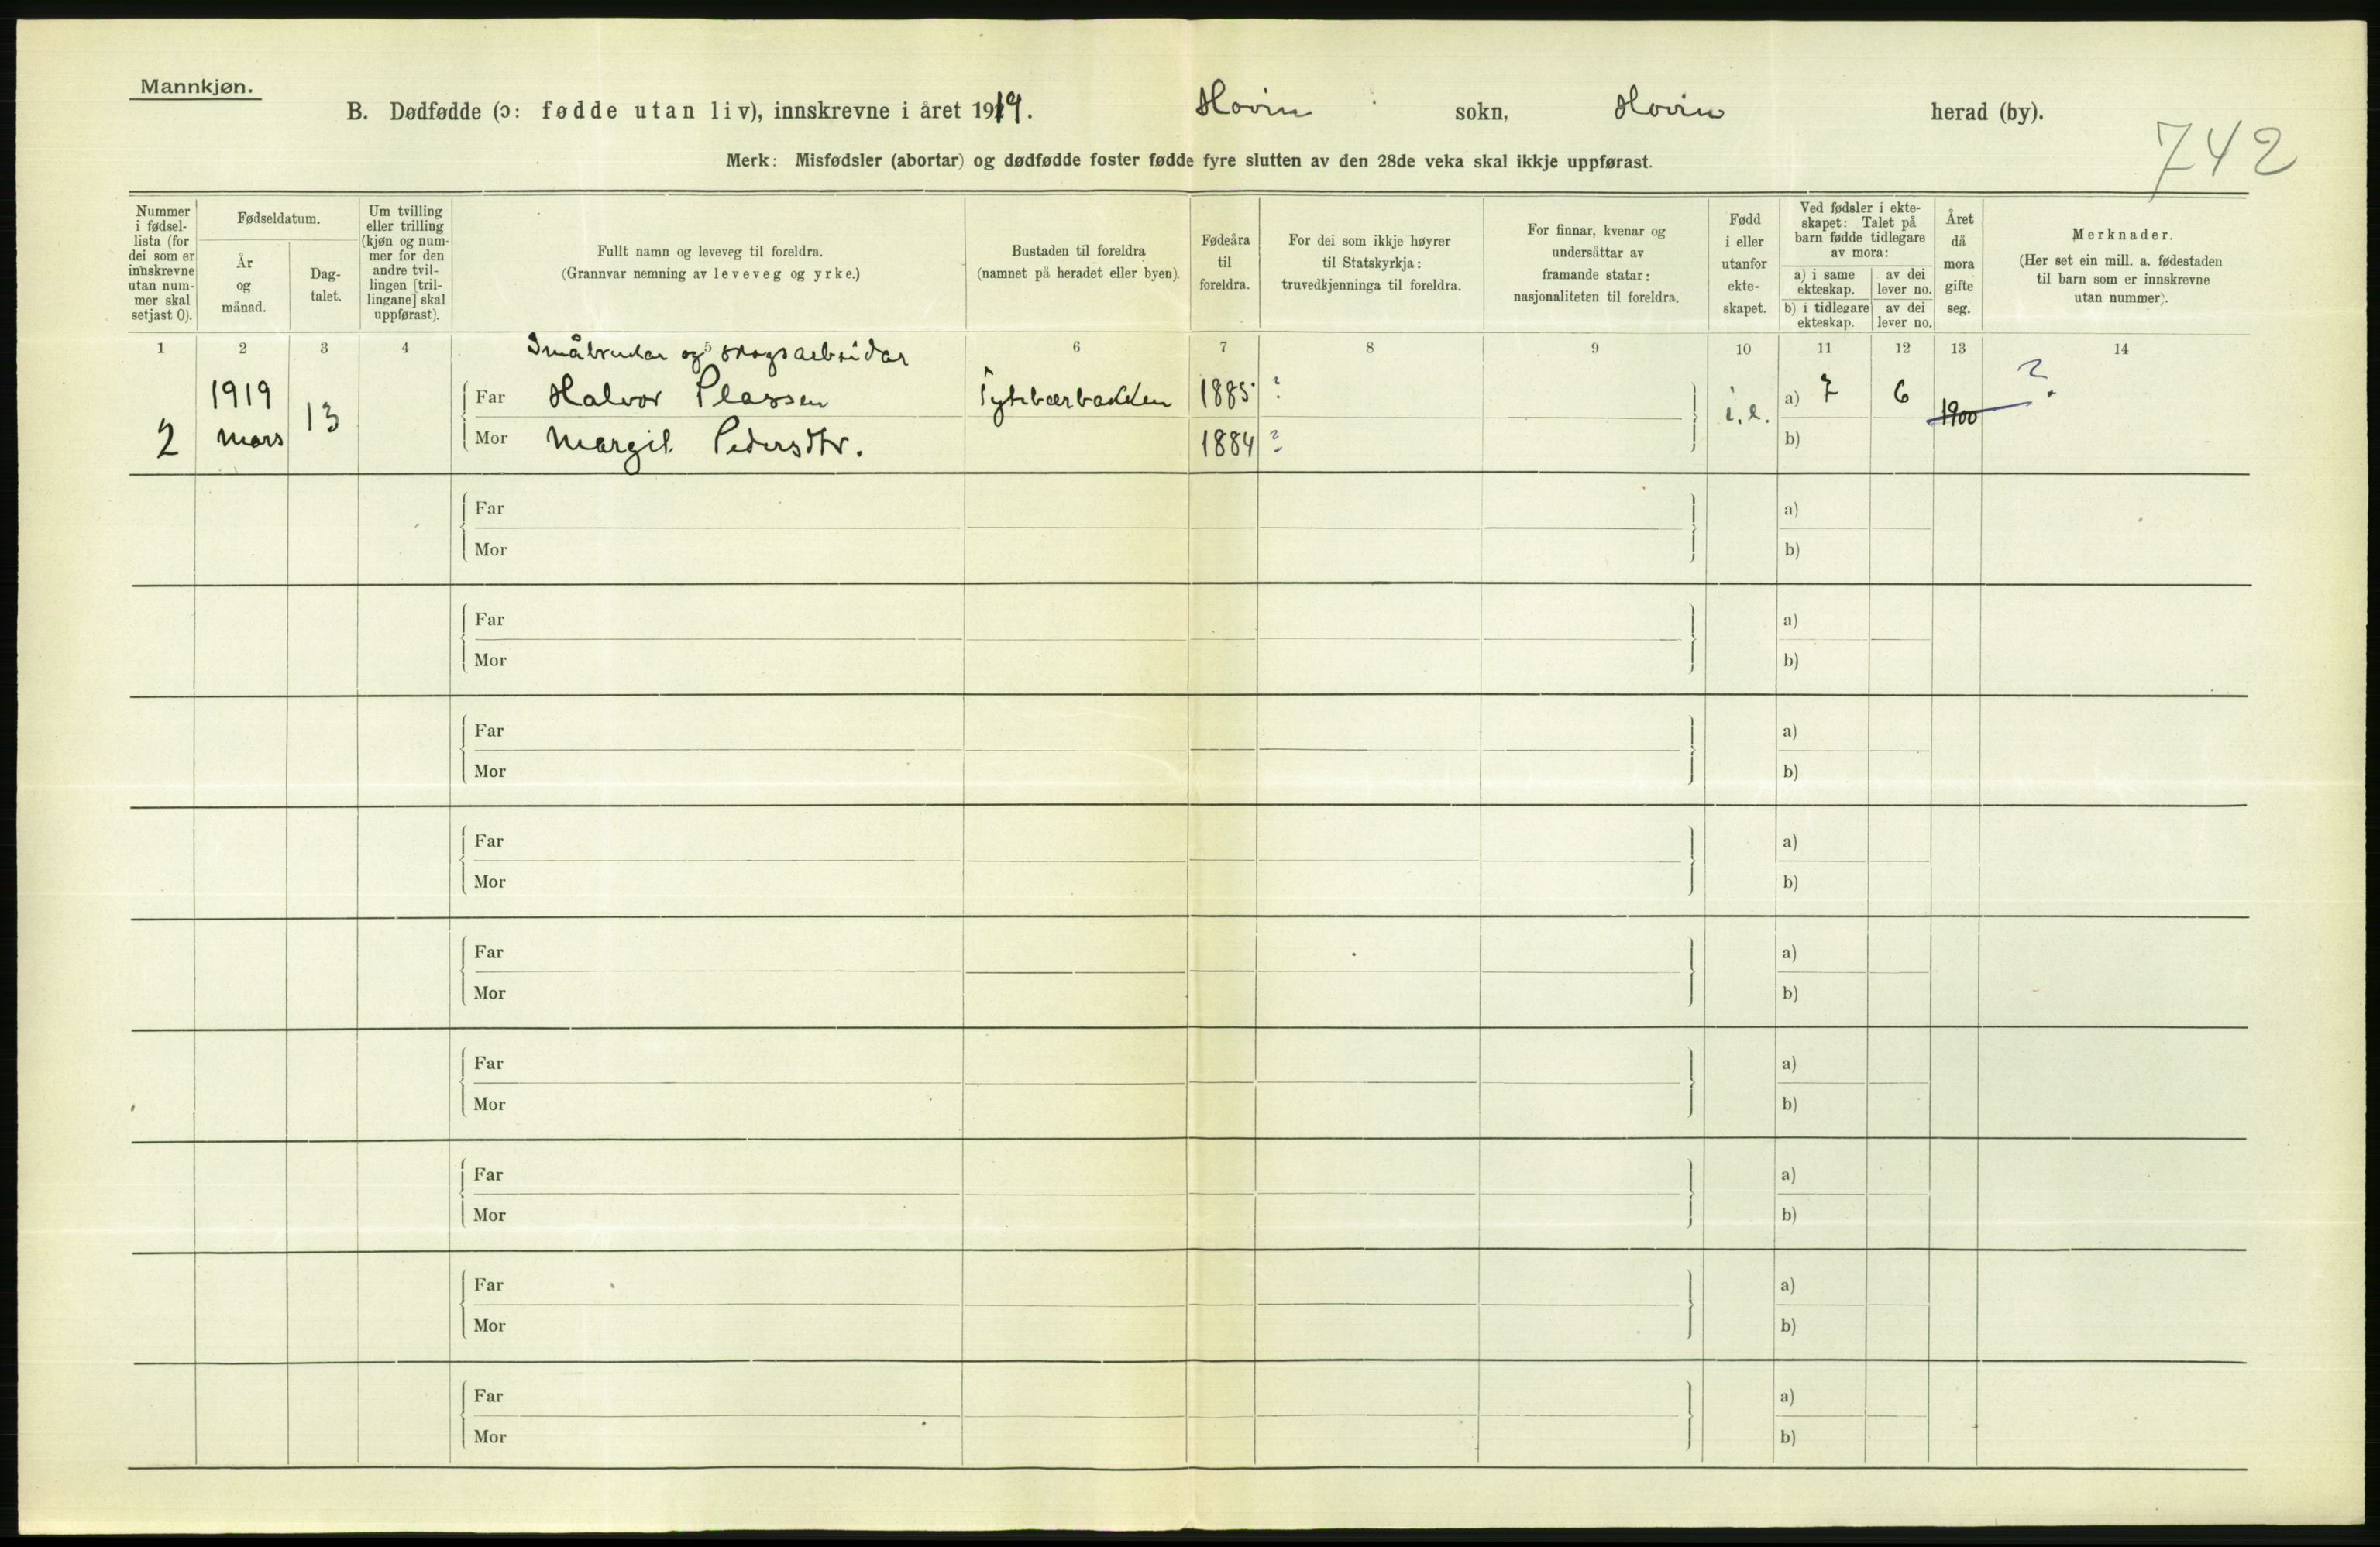 Mannkjøn.
B. Dødfødde (ɔ: fødde utan liv), innskrevne i året 1919. Hovin sokn, Hovin herad (by).
742
Merk: Misfødsler (abortar) og dødfødde foster fødde fyre slutten av den 28de veka skal ikkje uppførast.
Nummer i fødsel-lista (for dei som er innskrevne utan num-mer skal setjast 0).
Fødseldatum.
År og månad.
Dag-talet.
Um tvilling eller trilling (kjøn og num-mer for den andre tvil-lingen [tril-lingane] skal uppførast).
Fullt namn og leveveg til foreldra.
(Grannvar nemning av leveveg og yrke.)
Bustaden til foreldra
(namnet på heradet eller byen).
Fødeåra til foreldra.
For dei som ikkje høyrer til Statskyrkja: truvedkjenninga til foreldra.
For finnar, kvenar og undersåttar av framande statar: nasjonaliteten til foreldra.
Fødd i eller utanfor ekte-skapet.
Ved fødsler i ekte-skapet: Talet på barn fødde tidlegare av mora:
a) i same ekteskap. av dei lever no.
b) i tidlegare ekteskap. av dei lever no.
Året då mora gifte seg.
Merknader.
(Her set ein mill. a. fødestaden til barn som er innskrevne utan nummer).
1 2 3 4 5 6 7 8 9 10 11 12 13 14
Småbrukar og skogsarbeidar
1919 13 Far Halvor Plassen Tytebærbakken 1885 ? i. e. a) 7 6 1900 ?
2 mars Mor Margit Pedersdtr. 1884 ? b)
Far a)
Mor b)
Far a)
Mor b)
Far a)
Mor b)
Far a)
Mor b)
Far a)
Mor b)
Far a)
Mor b)
Far a)
Mor b)
Far a)
Mor b)
Far a)
Mor b)